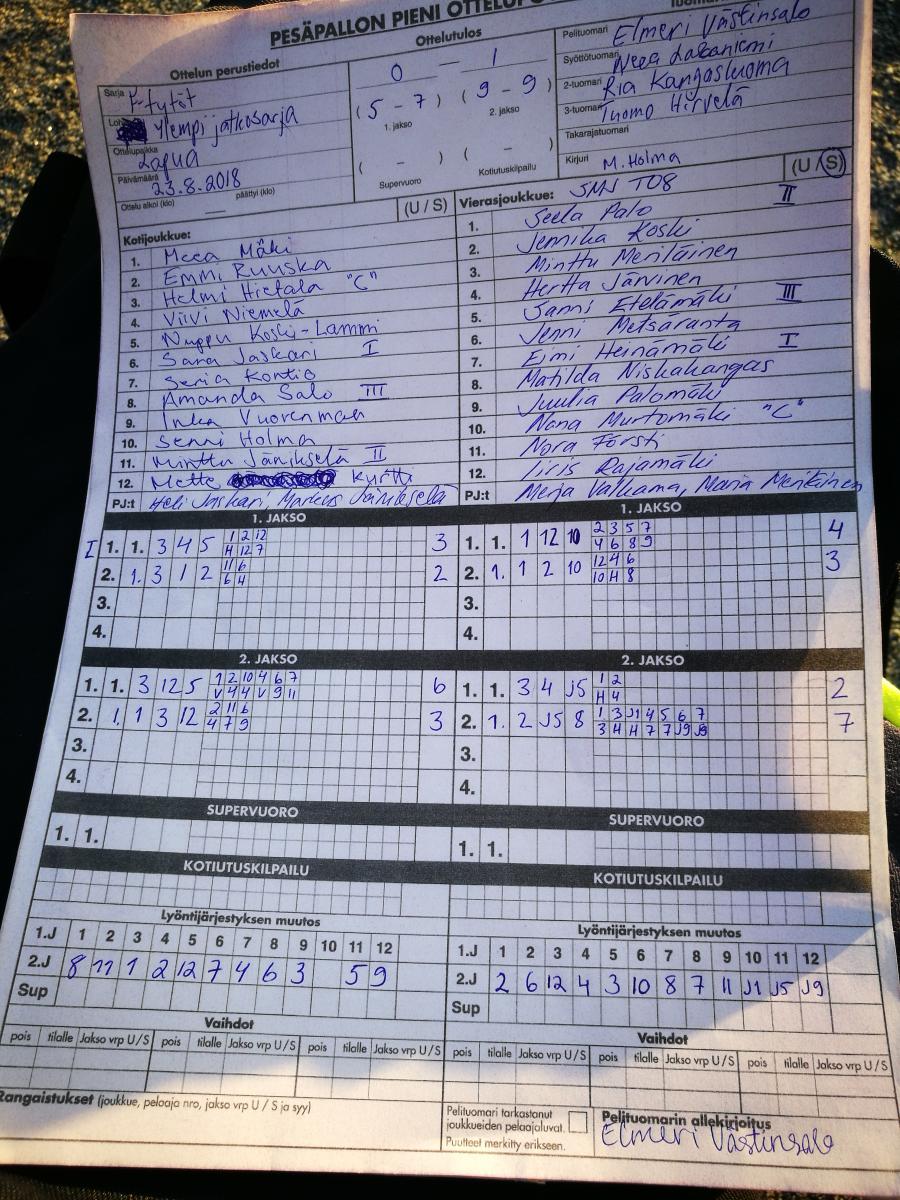 PESÄPALLON PIENI OTTELUPÖ
Ottelun perustiedot
Sarja F-tytöt
Ylempi jatkosarja
Ottelupaikka Lapua
Päivämäärä 23.8.2018
Ottelu alkoi (klo) — päättyi (klo)
Ottelutulos
0 — 1
(5 - 7) (9 - 9)
1. jakso 2. jakso
( - ) ( - )
Supervuoro Kotiutuskilpailu
Pelituomari Elmeri Västinsalo
Syöttötuomari Neea
2-tuomari Ria Kangasluoma
3-tuomari Tuomo Hirvelä
Takarajatuomari
Kirjuri M. Holma
Kotijoukkue: (U / S)
1. Meea Mäki
2. Emmi Ruuska
3. Helmi Hietala "C"
4. Viivi Niemelä
5. Nuppu Koski-Lammi
6. Sara Jaskari I
7. Senia Kontio
8. Amanda Salo III
9. Inka Vuorenmaa
10. Senni Holma
11. Minttu Jänikselä II
12. Mette Kyrttı
PJ:t Heli Jaskari, Markus Jänikselä
Vierasjoukkue: SMJ T08 (U / S)
1. Seela Palo II
2. Jennika Koski
3. Minttu Meriläinen
4. Hertta Järvinen
5. Sanni Etelämäki III
6. Jenni Metsäranta
7. Eimi Heinämäki I
8. Matilda Niskakangas
9. Juulia Palomäki
10. Nana Murtomäki "C"
11. Nora Försti
12. Iiris Rajamäki
PJ:t Merja Valkama, Maria
1. JAKSO
I 1. 1. 3 4 5 1 2 12 3
H 12 7
2. 1. 3 1 2 11 6 2
6 4
3.
4.
1. JAKSO
1. 1. 1 12 10 2 3 5 7 4
4 6 8 9
2. 1. 1 2 10 12 4 6 3
10 H 8
3.
4.
2. JAKSO
1. 1. 3 12 5 1 2 10 4 6 7 6
V 4 4 V 9 11
2. 1. 1 3 12 2 11 6 3
4 7 9
3.
4.
2. JAKSO
1. 1. 3 4 J5 1 2 2
H 4
2. 1. 2 J5 8 1 3 J1 4 5 6 7 7
3 4 H 7 7 J9 J9
3.
4.
SUPERVUORO
1. 1.
SUPERVUORO
1. 1.
KOTIUTUSKILPAILU
KOTIUTUSKILPAILU
Lyöntijärjestyksen muutos
1.J 1 2 3 4 5 6 7 8 9 10 11 12
2.J 8 11 1 2 12 7 4 6 3 5 9
Sup
Lyöntijärjestyksen muutos
1.J 1 2 3 4 5 6 7 8 9 10 11 12
2.J 2 6 12 4 3 10 8 7 11 J1 J5 J9
Sup
Vaihdot
pois tilalle Jakso vrp U/S pois tilalle Jakso vrp U/S pois tilalle Jakso vrp U/S
Vaihdot
pois tilalle Jakso vrp U/S pois tilalle Jakso vrp U/S pois tilalle Jakso vrp U/S
Rangaistukset (joukkue, pelaaja nro, jakso vrp U / S ja syy)
Pelituomari tarkastanut
joukkueiden pelaajaluvat.
Puutteet merkitty erikseen.
Pelituomarin allekirjoitus
Elmeri Västinsalo